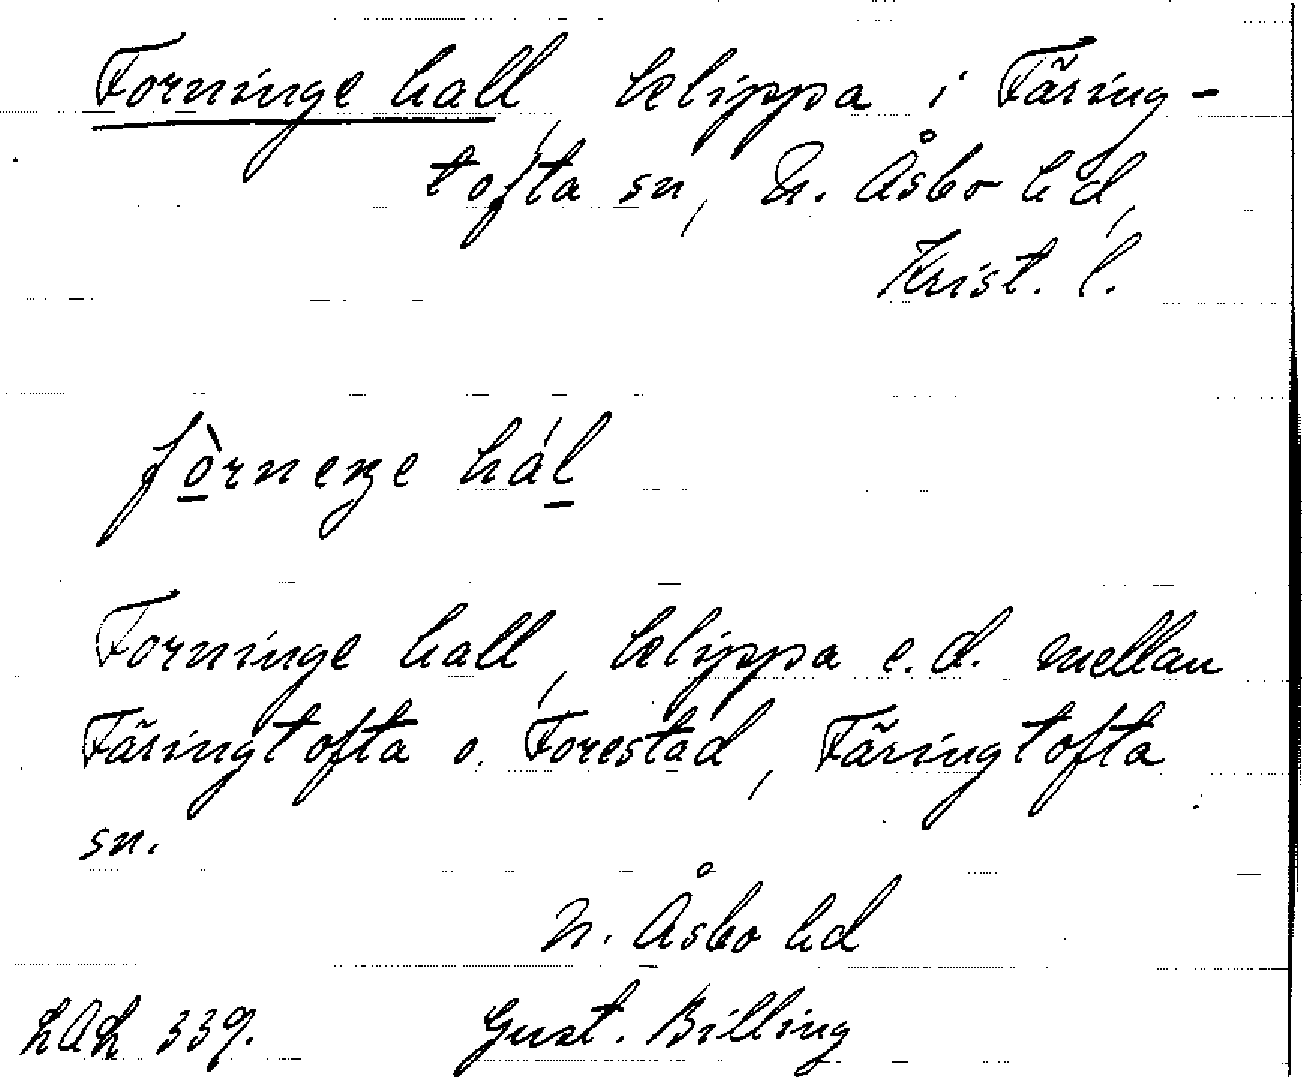 Forninge hall, klippa i Färing-
tofta sn, N. Åsbo hd,
Krist. l.
fò̲rneŋe hál̲
Forninge hall, klippa e.d. mellan
Färingtofta o. Forestad, Färingtofta
sn.
N. Åsbo hd
LAL 339. Gust. Billing